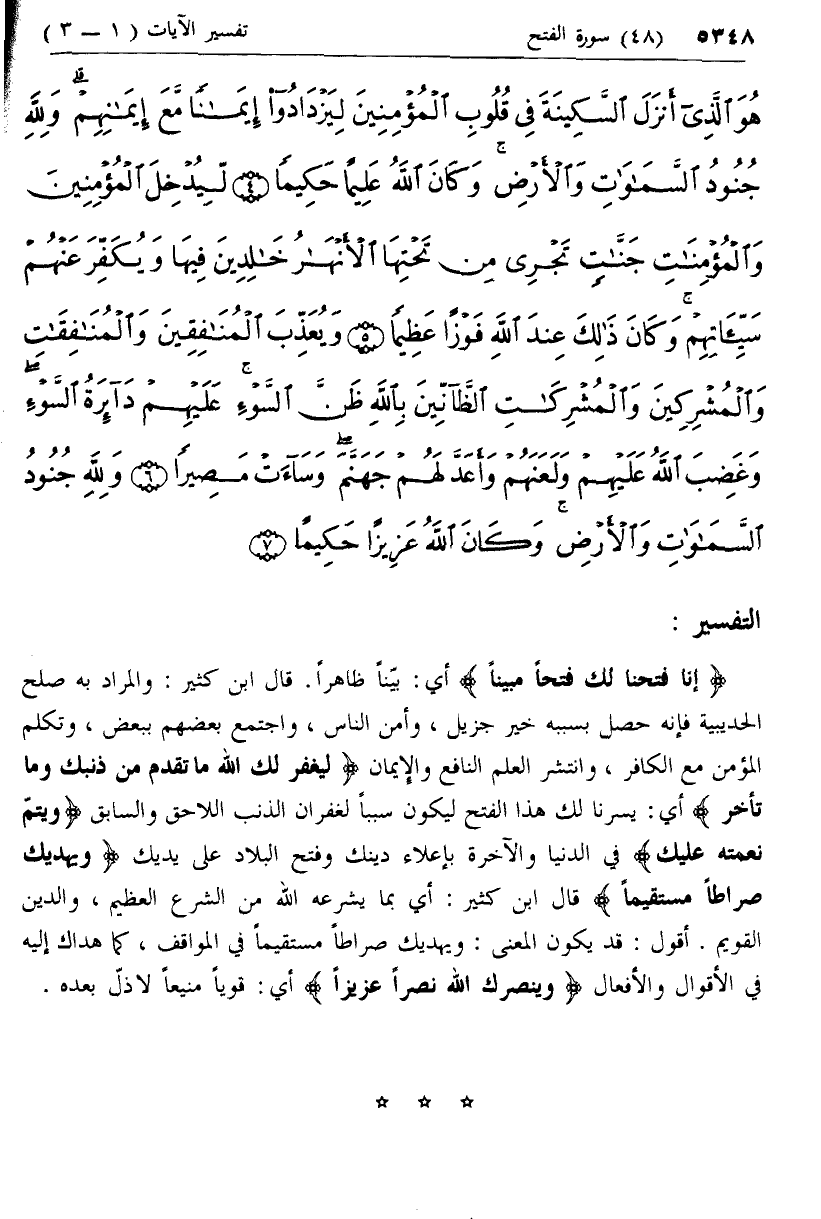 ٥٣٤٨ (٤٨) سورة الفتح تفسير الآيات ( ١ – ٣ )
هُوَ ٱلَّذِىٓ أَنزَلَ ٱلسَّكِينَةَ فِى قُلُوبِ ٱلْمُؤْمِنِينَ لِيَزْدَادُوٓا۟ إِيمَـٰنًا مَّعَ إِيمَـٰنِهِمْ ۗ وَلِلَّهِ
جُنُودُ ٱلسَّمَـٰوَٰتِ وَٱلْأَرْضِ ۚ وَكَانَ ٱللَّهُ عَلِيمًا حَكِيمًا ﴿٤﴾ لِّيُدْخِلَ ٱلْمُؤْمِنِينَ
وَٱلْمُؤْمِنَـٰتِ جَنَّـٰتٍ تَجْرِى مِن تَحْتِهَا ٱلْأَنْهَـٰرُ خَـٰلِدِينَ فِيهَا وَيُكَفِّرَ عَنْهُمْ
سَيِّـَٔاتِهِمْ ۚ وَكَانَ ذَٰلِكَ عِندَ ٱللَّهِ فَوْزًا عَظِيمًا ﴿٥﴾ وَيُعَذِّبَ ٱلْمُنَـٰفِقِينَ وَٱلْمُنَـٰفِقَـٰتِ
وَٱلْمُشْرِكِينَ وَٱلْمُشْرِكَـٰتِ ٱلظَّآنِّينَ بِٱللَّهِ ظَنَّ ٱلسَّوْءِ ۚ عَلَيْهِمْ دَآئِرَةُ ٱلسَّوْءِ ۖ
وَغَضِبَ ٱللَّهُ عَلَيْهِمْ وَلَعَنَهُمْ وَأَعَدَّ لَهُمْ جَهَنَّمَ ۖ وَسَآءَتْ مَصِيرًا ﴿٦﴾ وَلِلَّهِ جُنُودُ
ٱلسَّمَـٰوَٰتِ وَٱلْأَرْضِ ۚ وَكَانَ ٱللَّهُ عَزِيزًا حَكِيمًا ﴿٧﴾
التفسير :
﴿ إنا فتحنا لك فتحاً مبيناً ﴾ أي: بيّناً ظاهراً . قال ابن كثير : والمراد به صلح
الحديبية فإنه حصل بسببه خير جزيل ، وأمن الناس ، واجتمع بعضهم ببعض ، وتكلم
المؤمن مع الكافر ، وانتشر العلم النافع والإيمان ﴿ ليغفر لك الله ما تقدم من ذنبك وما
تأخر ﴾ أي: يسرنا لك هذا الفتح ليكون سبباً لغفران الذنب اللاحق والسابق ﴿ ويتمّ
نعمته عليك ﴾ في الدنيا والآخرة بإعلاء دينك وفتح البلاد على يديك ﴿ ويهديك
صراطاً مستقيماً ﴾ قال ابن كثير : أي بما يشرعه الله من الشرع العظيم ، والدين
القويم . أقول : قد يكون المعنى : ويهديك صراطاً مستقيماً في المواقف ، كما هداك إليه
في الأقوال والأفعال ﴿ وينصرك الله نصراً عزيزاً ﴾ أي: قوياً منيعاً لا ذلّ بعده .
☆ ☆ ☆